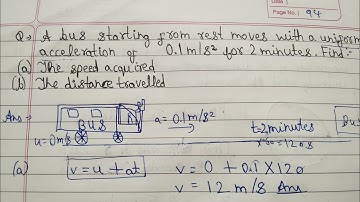 Page No. 94
Q → A bus starting from rest moves with a uniform
acceleration of 0.1 m/s² for 2 minutes. Find:-
(a) The speed acquired
(b) The distance travelled
Ans →
BUS
a = 0.1 m/s²
t=2 minutes
u = 0 m/s
(a) v = u + at
v = 0 + 0.1 × 120
v = 12 m/s Ans